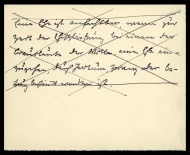 Eine Ehe ist anfechtbar, wenn zur
Zeit der Eheschließung bei einem der
Brautleute der Wille, eine Ehe ein-
zugehen, durch Irrtum, Zwang oder Be-
trug bestimmt worden ist.